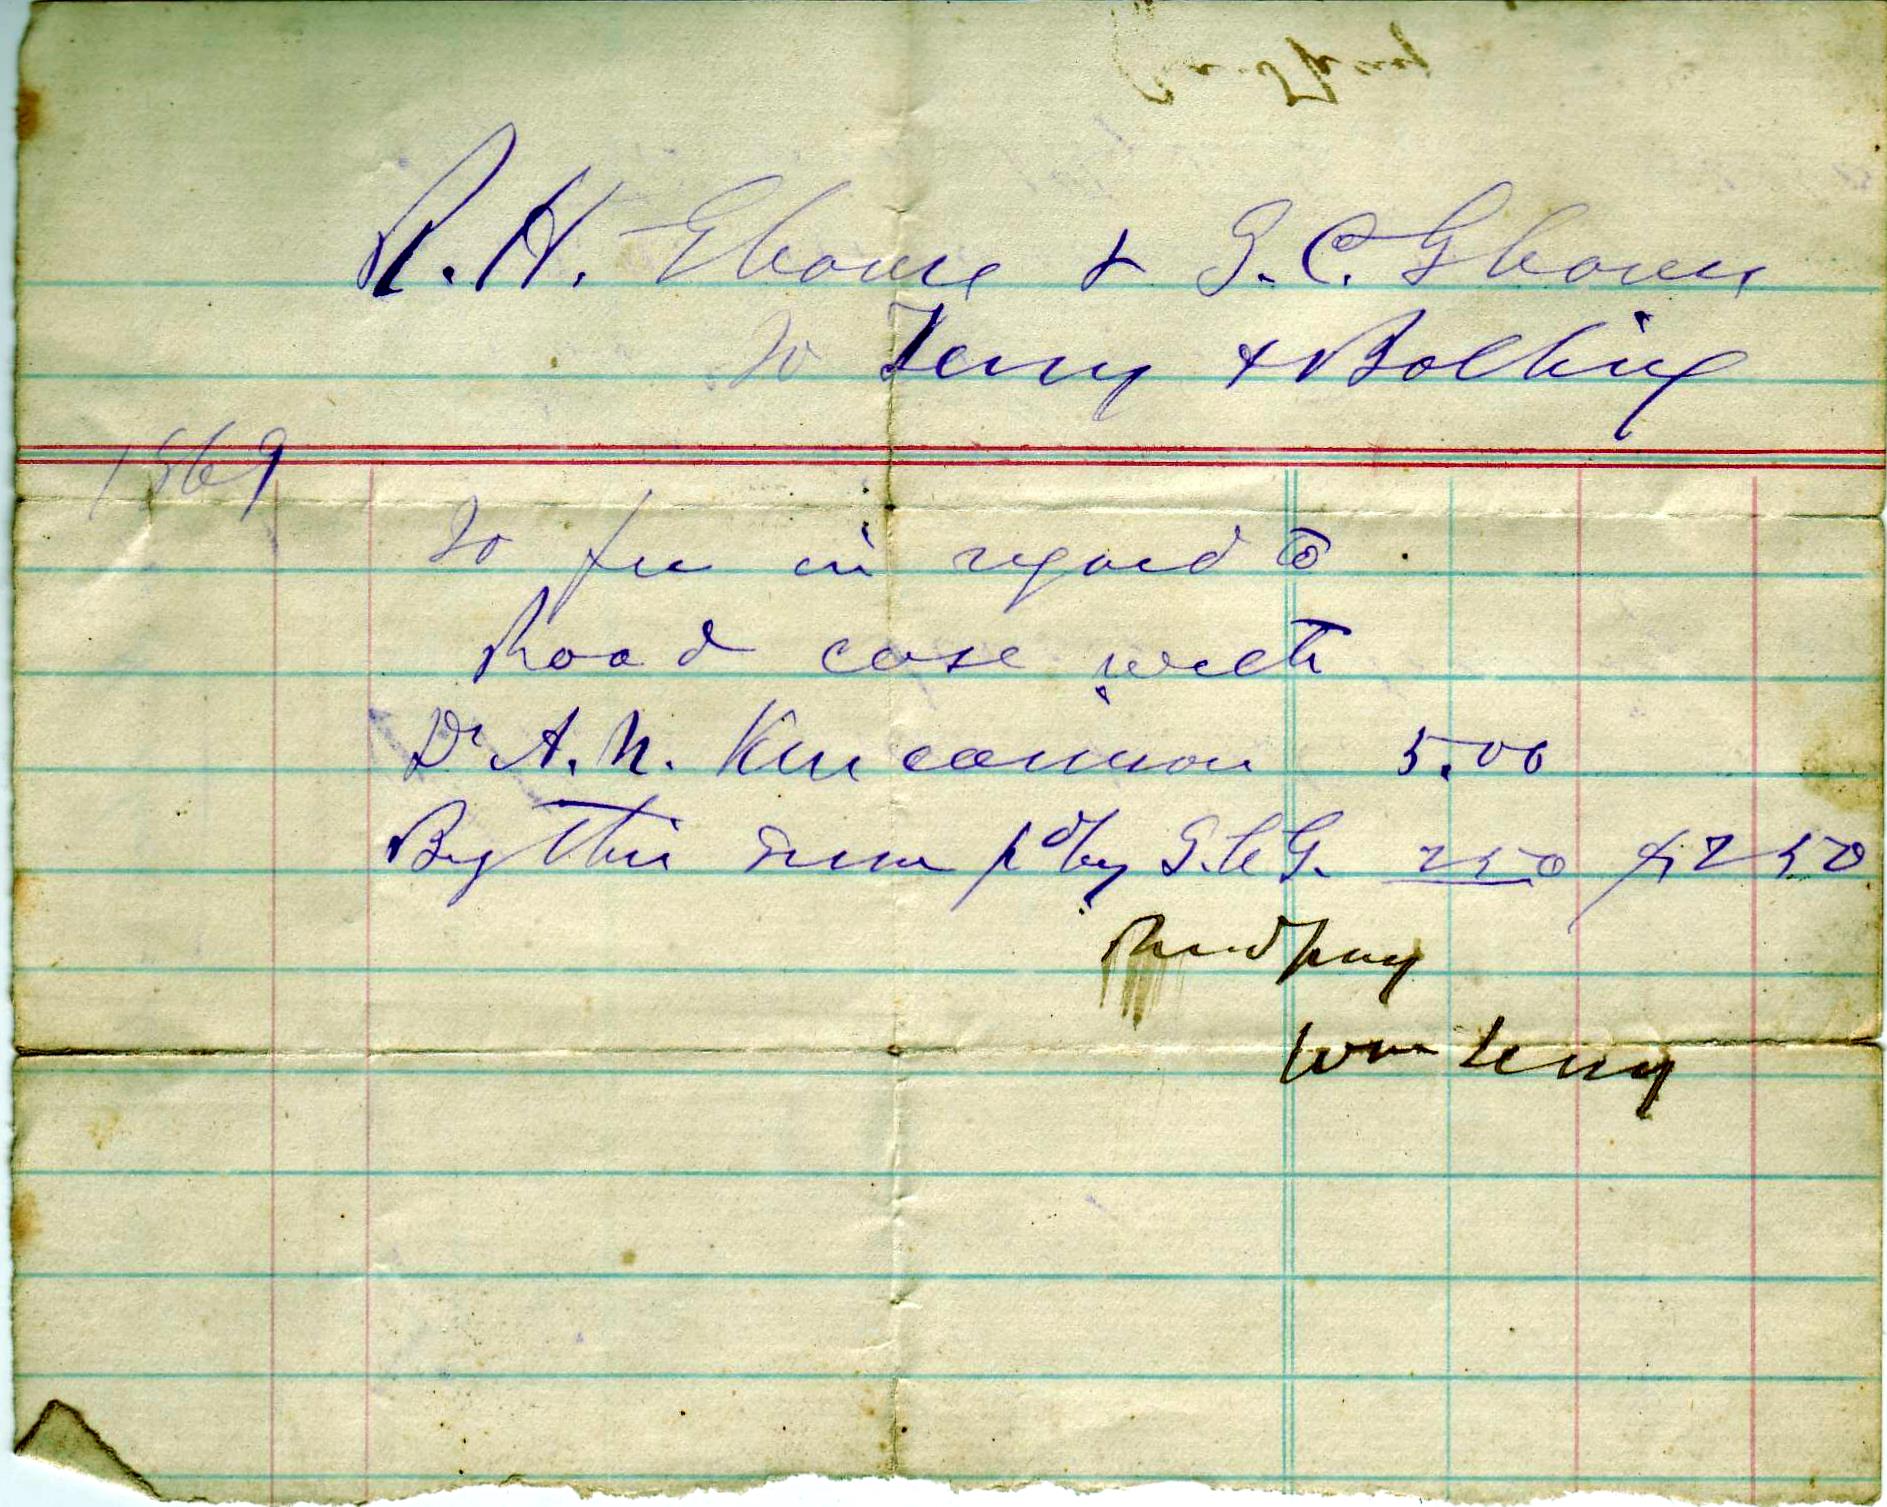 R. H. & G. C.
To Terry & Bolling
1869
To fee in regard to
Road case with
Dr A. N. Kincannon 5.00
By this sum pd by G. C. G. 250 $2 50
Recd pay
Wm Terry